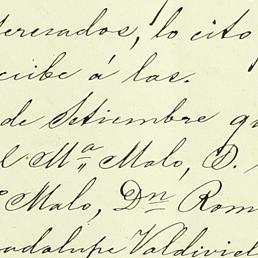 teresados, lo cito
cibe á las.
de Setiembre qu
l Mª Malo, D.
Malo, Dn Rom
adalupe Valdivie